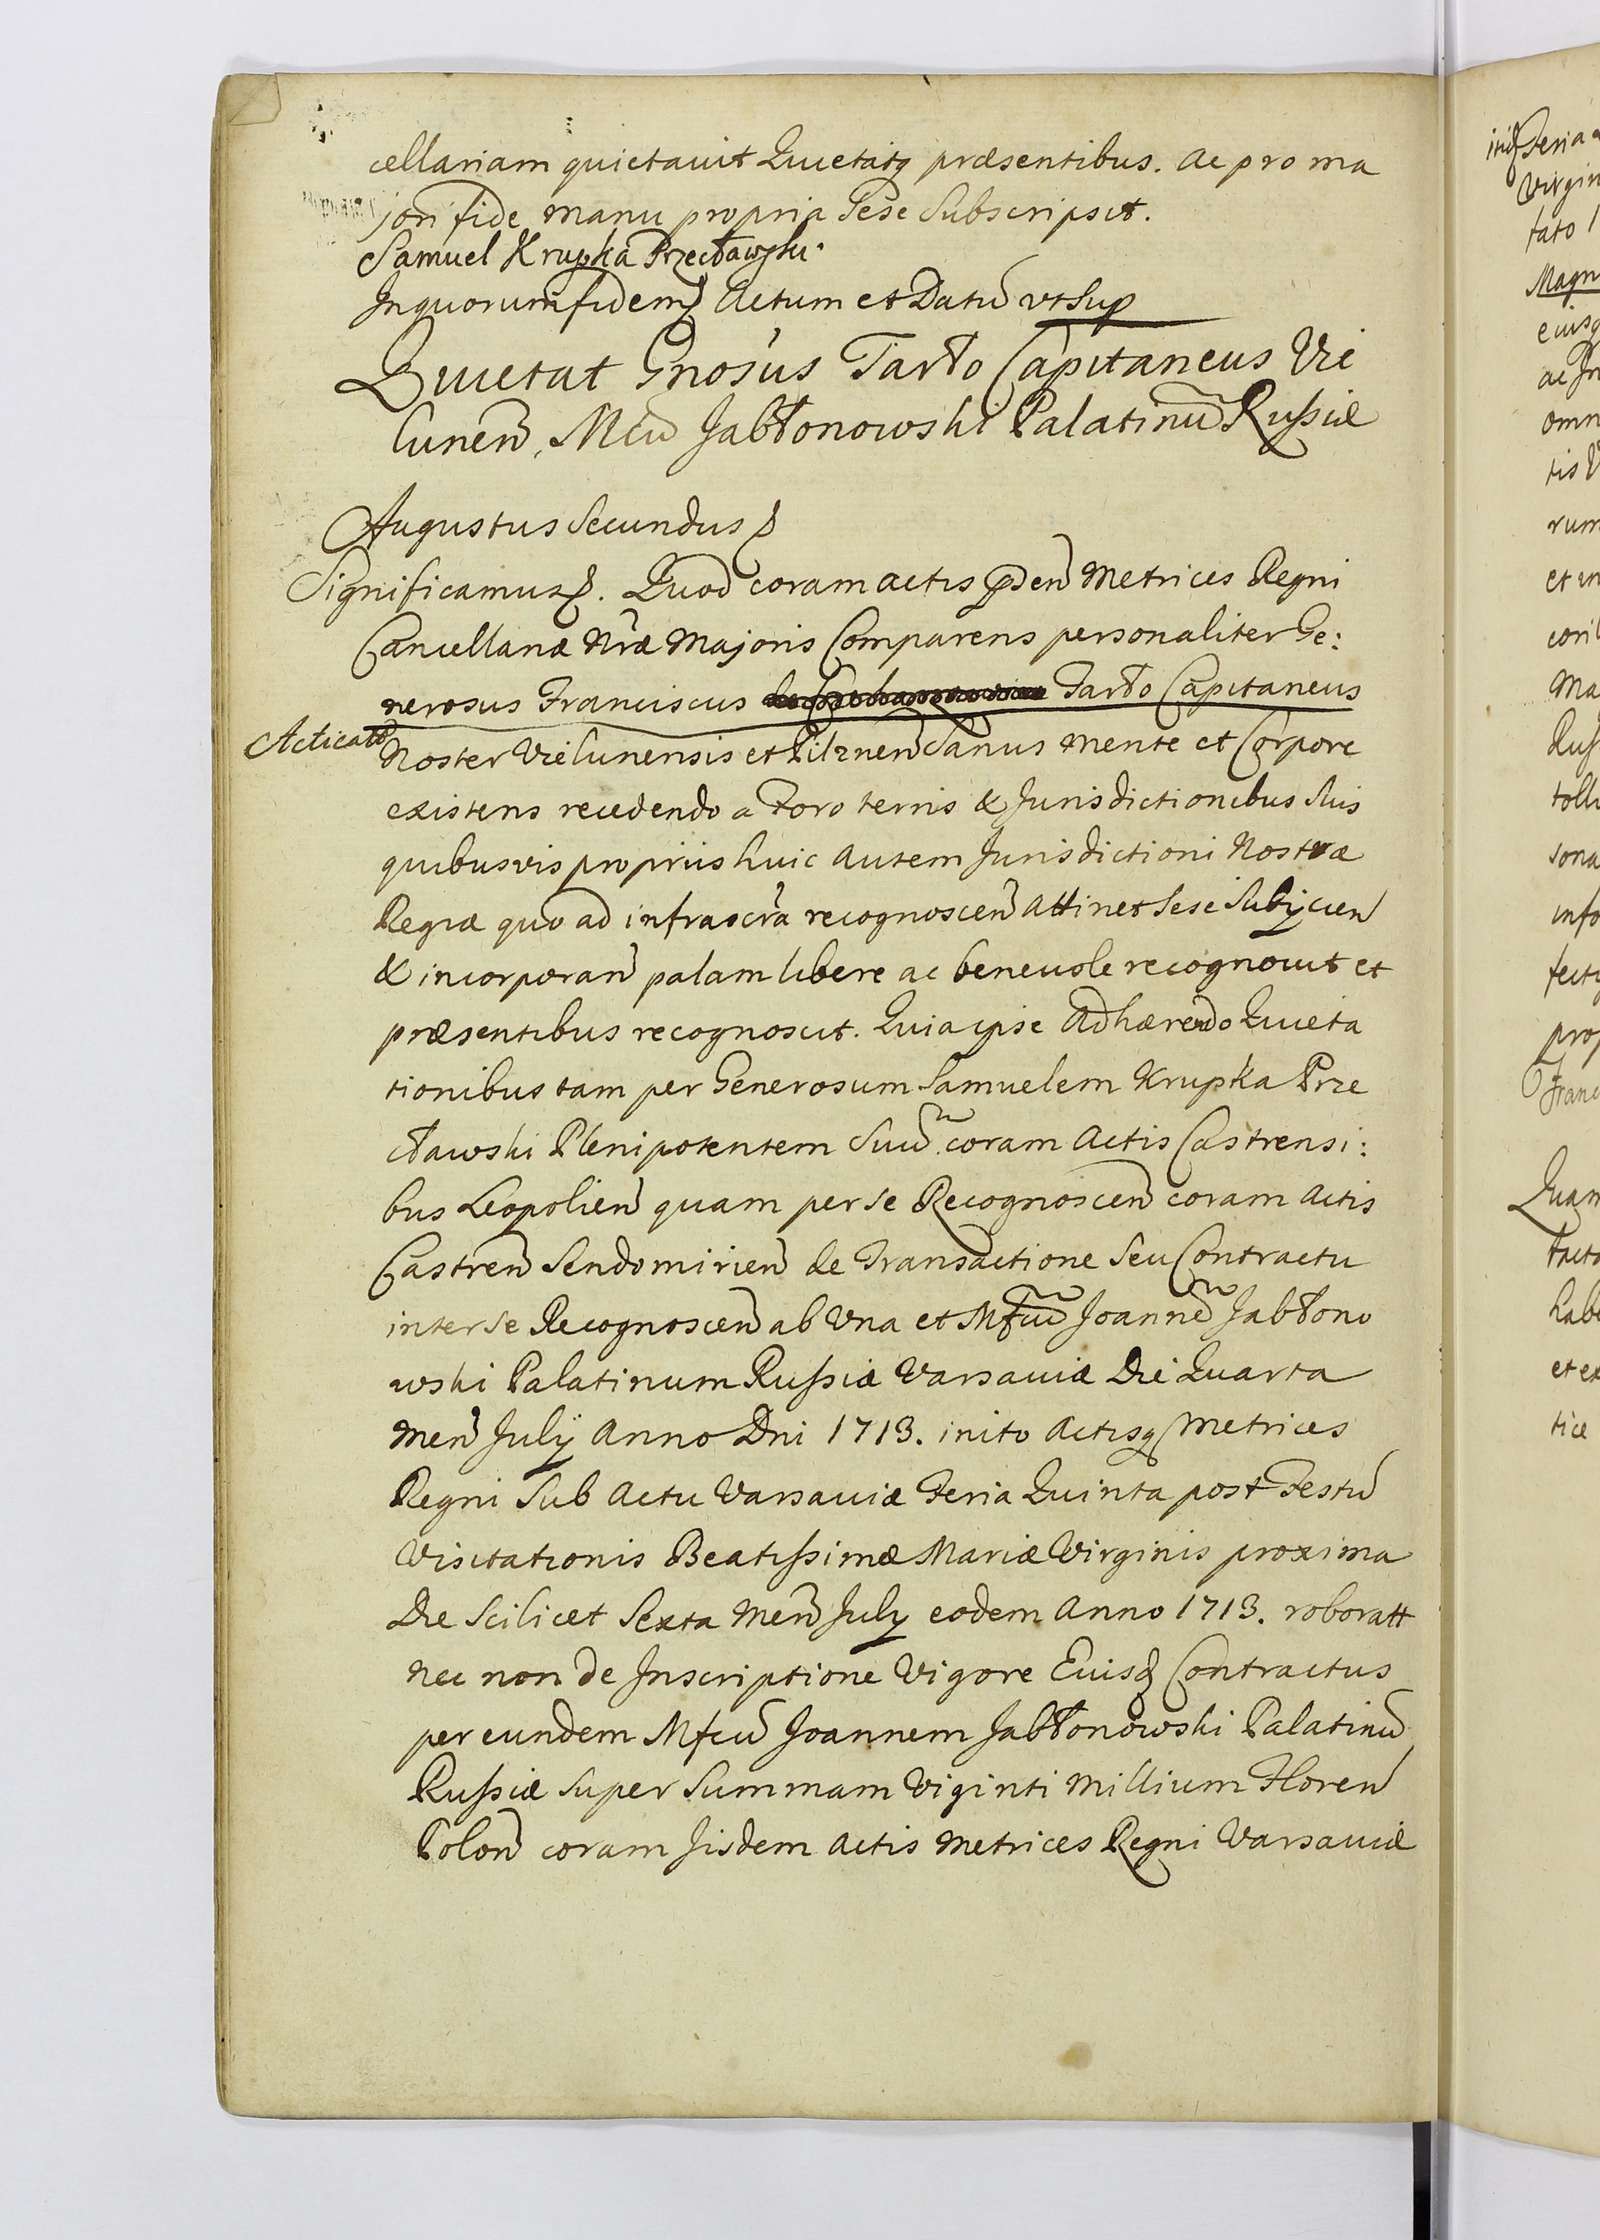 cellariam quietavit Quietatq præsentibus. Ac pro ma
jori fide manu propria Sese Subscripsit.
Samuel Krupka Przecławski.
In quorum fidem Actum et Datū vt Sup
Quietat Gnosus Tarło Capitaneus Vie
lunen̄, Mcū Jabłonowski Palatinū Russiæ
Augustus Secundus
Significamus. Quod coram actis pn̄ Metrices Regni
Cancellariæ Nræ Majoris Comparens personaliter Ge:
nerosus Franciscus Tarło Capitaneus
Acticatō
Noster Vielunensis et Pilznen̄ Sanus mente et Corpore
existens recedendo a Foro terris & Jurisdictionibus Suis
quibusvis proprijs huic autem Jurisdictioni Nostræ
Regiæ quo ad infrascra recognoscen̄ attinet Sese Subijcien̄
& incorporan̄ palam libere ac benevole recognovit et
præsentibus recognoscit. Quia ipse Adhærendo Quieta
tionibus tam per Generosum Samuelem Krupka Prze
cławski Plenipotentem Suū coram Actis Castrensi:
bus Leopolien̄ quam per se Recognoscen̄ coram Actis
Castren̄ Sendomirien̄ de Transactione Seu Contractu
inter se Recognoscen̄ ab Vna et Mfcū Joannē Jabłono
wski Palatinum Russiæ Varsaviæ Die Quarta
Men̄ July Anno Dni 1713. inito Actisq Metrices
Regni Sub Actu Varsaviæ Feria Quinta post Festū
Visitationis Beatissimæ Mariæ Virginis proxima
Die Scilicet Sexta Men̄ July eodem Anno 1713. roboratt
nec non de Inscriptione Vigore Euisd Contractus
per eundem Mfcū Joannem Jabłonowski Palatinū
Russiæ Super Summam Viginti Millium Floren̄
Polon̄ coram Iisdem Actis Metrices Regni Varsaviæ